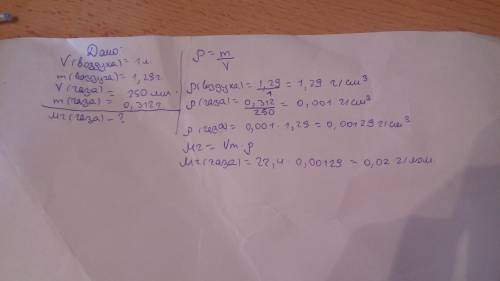 Дано:
V(воздуха) = 1л
m(воздуха) = 1,29г
V(газа) = 250 мл.
m(газа) = 0,312г
Mr(газа) - ?
ρ = m/V
ρ(воздуха) = 1,29/1 = 1,29 г/см³
ρ(газа) = 0,312/250 = 0,001 г/см³
ρ(газа) = 0,001 · 1,29 = 0,00129 г/см³
Mr = Vm · ρ
Mr(газа) = 22,4 · 0,00129 = 0,02 г/моль